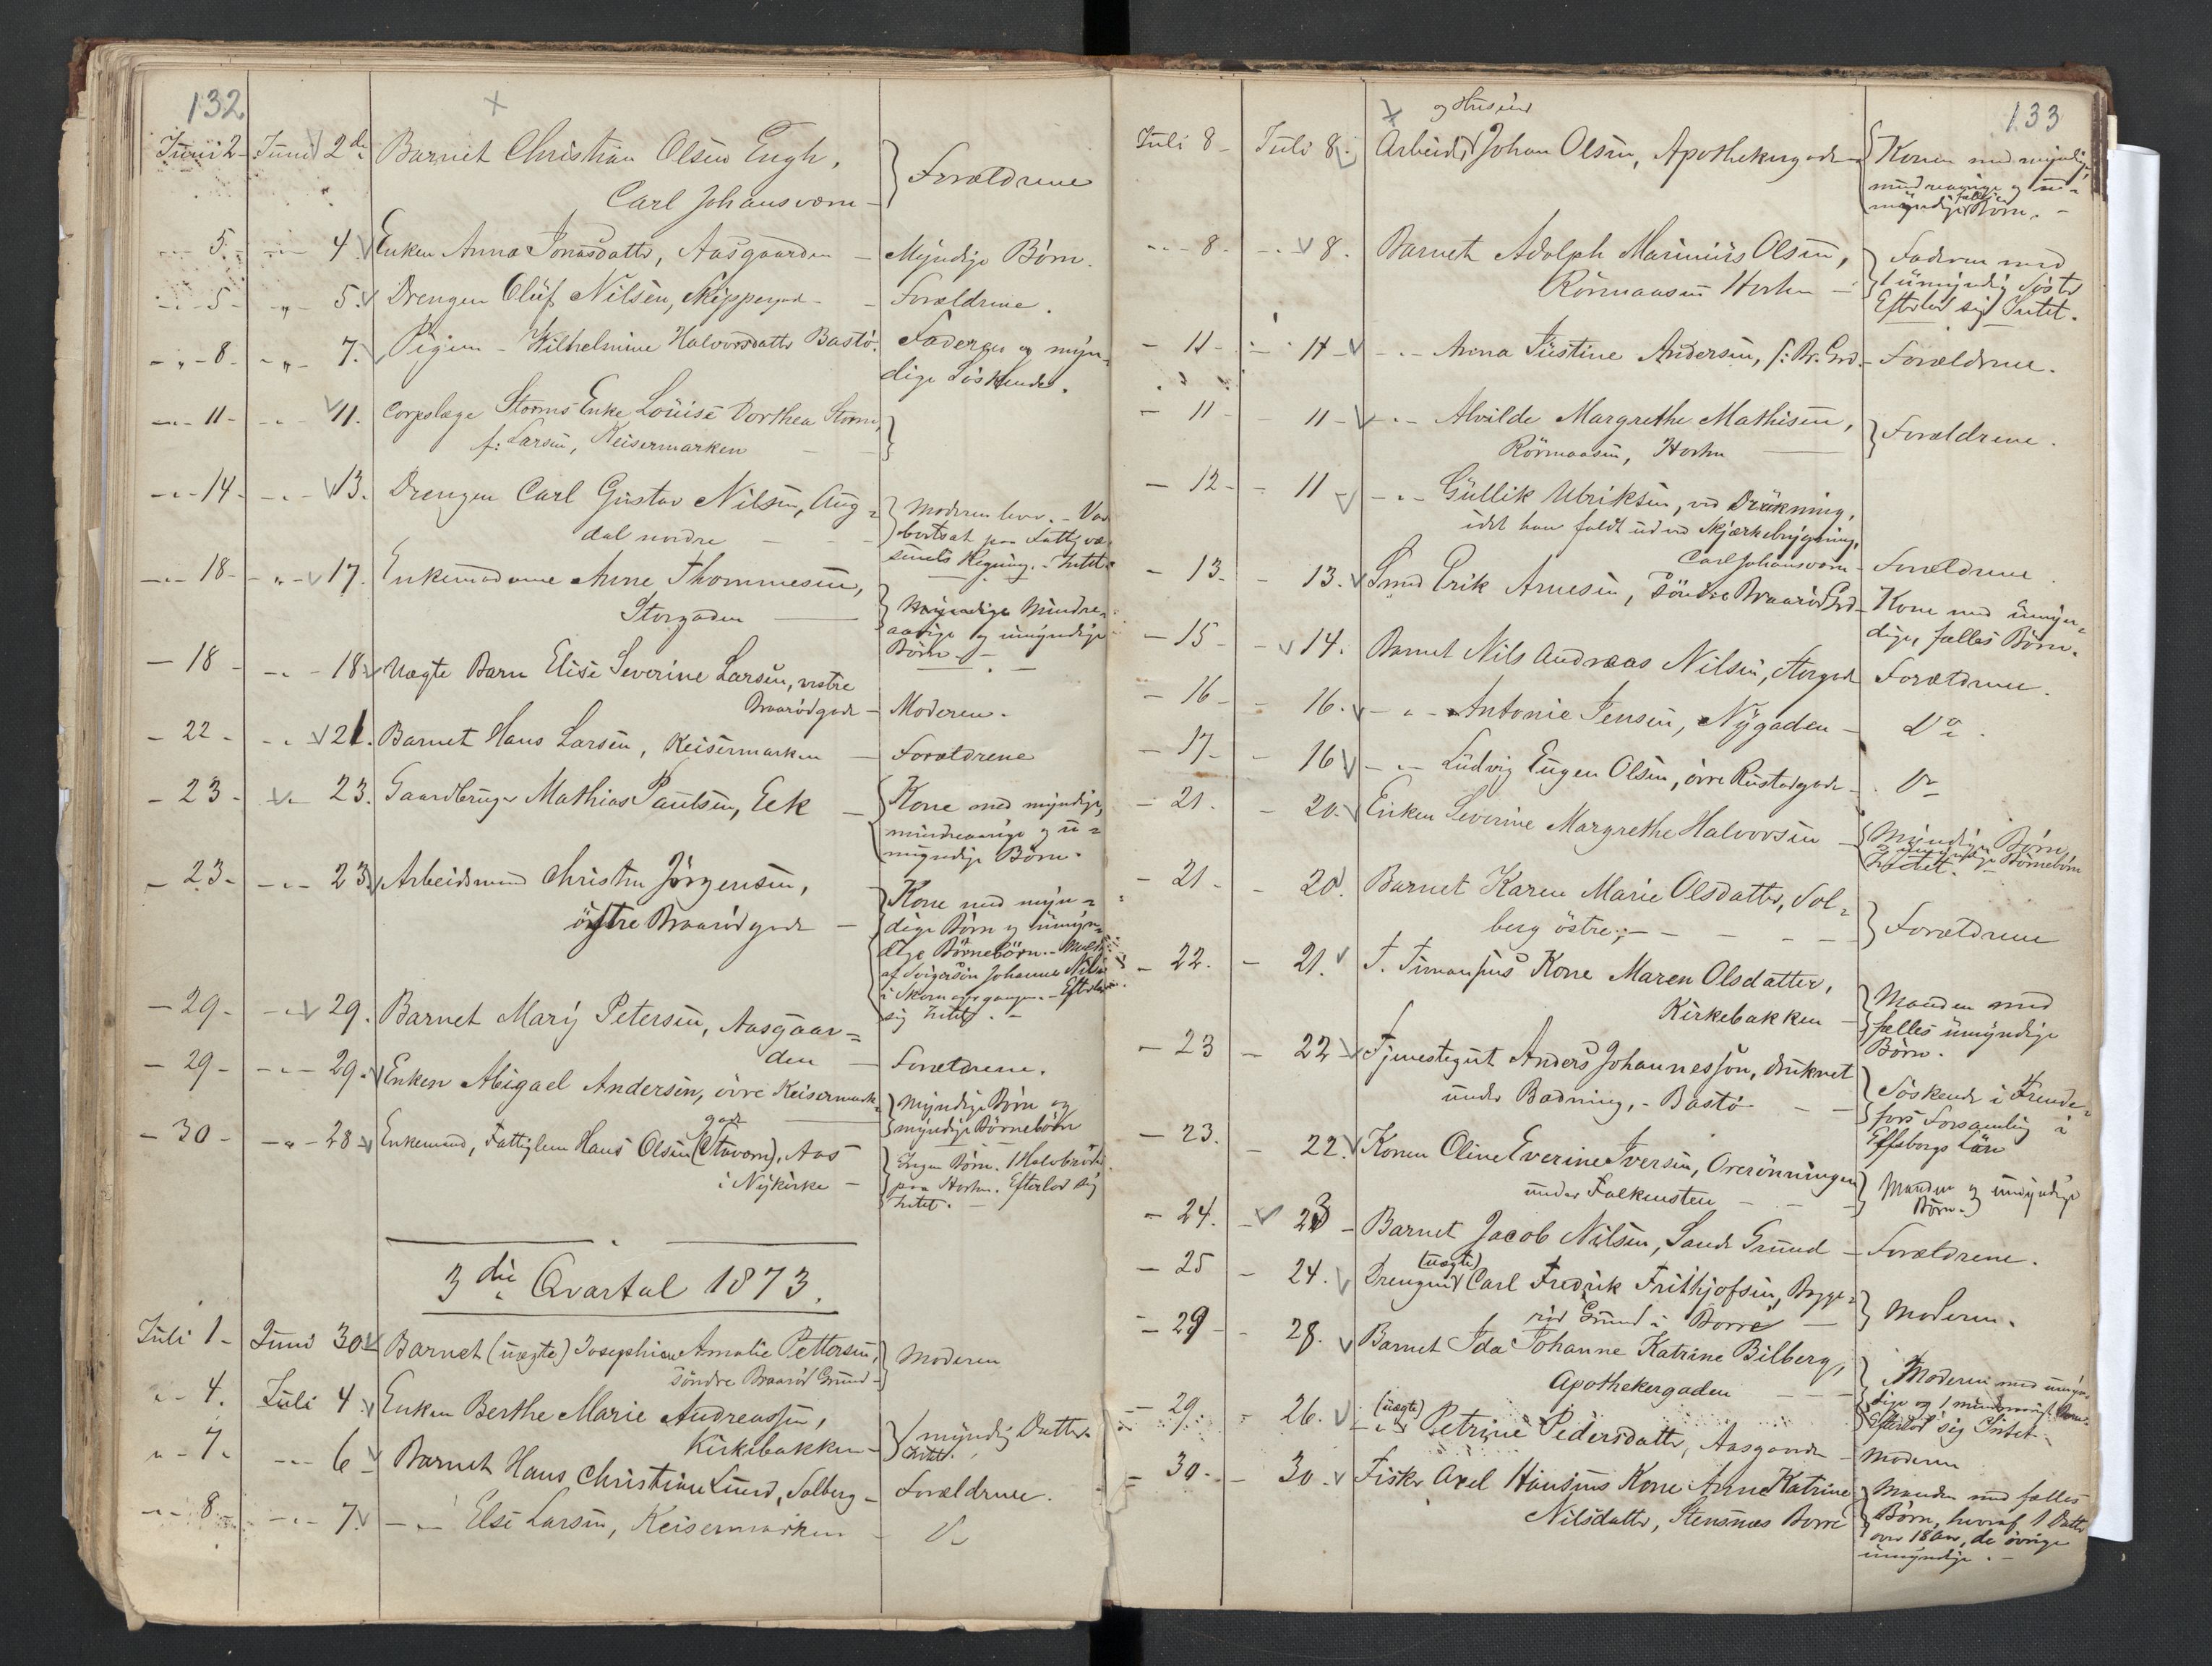 132
Juni 2 - Juni 2den Barnet Christian Olsen Engh,
Carl Johansværn - } Forældrene
5. 4. Enken Anna Jonasdatter, Aasgaarden - Myndige Børn.
5 - 5. Drengen Oluf Nilsen, Skippergd - Forældrene.
8 - 7. Pigen - Wilhelmine Halvorsdatter Bastö. Faderen og myn-
dige Söskende.
11 - 11. Corpslæge Storms Enke Louise Dorthea Storm,
f: Larsen, Keisermarken
14 - 13. Drengen Carl Gustav Nilsen, Aug- } Moderen lever. - Var
dal nordre - bortsat paa Fattigvæ-
senets Regning. - Intet.
18 - 17. Enkemadame Anne Thommesen,
Storgaden } Myndige Mindre-
aarige og umyndige
Børn. -
18 - 18. Uægte Barn Elise Severine Larsen, vestre
Braarødgade - Moderen.
22 - 21. Barnet Hans Larsen, Keisermarken - Forældrene
23 - 23. Gaardbruger Mathias Paulsen, Eek - { Kone med myndige,
mindreaarige og u-
myndige Børn.
23 - 23. Arbeidsmand Christen Jörgensen,
östre Braarödgade - Kone med myn-
dige Børn og umyn-
dige Börnebörn. -
af Svigersön Johannes Nilsen
i - Efterlod
sig Intet. -
29 - 29. Barnet Mary Petersen, Aasgaar-
den - Forældrene.
29 - 29. Enken Abigael Andersen, övre Keisermark-
gade } Myndige Børn og
myndige Børnebørn
30 - 28 Enkemand, Fattiglem Hans Olsen (Stavern), Aas
i Nykirke - } Ingen Børn. 1 Halvbroder
paa Horten. Efterlod sig
Intet. -
3die Qvartal 1873.
Juli 1 - Juni 30 Barnet (uægte) Josephine Amalie Pettersen,
söndre Braaröd Grund - } Moderen
4. Juli 4. Enken Berthe Marie Andreassen,
Kirkebakken - } 1 myndig Datter.
Intet.
7. 6 Barnet Hans Christian Lund, Solberg - Forældrene.
8 - 7. Else Larsen, Keisermarken - Do
133
og Huseier
Juli 8 - Juli 8. Arbeider Johan Olsen, Apothekergaden { Konen med myndige,
mindreaarige og u-
myndige fælles Børn. -
8 - 8. Barnet Adolph Marinius Olsen,
Rörmaasen Horten - } Faderen med
1 umyndig Söster
Efterlod sig Intet.
11 - 11 Anna Justine Andersen, Grd. - Forældrene.
11 - 11 Alvilde Margrethe Mathisen,
Rörmaasen, Horten } Forældrene.
12 - 11 Gullik Ulriksen, ved Drukning,
idet han faldt ud ved Skjærkebrygning,
Carljohansværn - Forældrene.
13. - 13. Smed Erik Arnesen, Söndre BraarödGrd - Kone med umyn-
dige, fælles Børn.
15 - 14. Barnet Nils Andreas Nilsen, Storgade Forældrene.
16 - 16. Antonie Jensen, Nygaden - Do.
17 - 16 Ludvig Eugen Olsen, övre Rustadgade - Do
21. - 20. Enken Severine Margrethe Halvorsen - { Myndige Børn,
og umyndige Börnebörn
Intet. -
21 - 20. Barnet Karen Marie Olsdatter, Sol-
berg östre; - } Forældrene
22. - 21. T. Kone Maren Olsdatter,
Kirkebakken - } Manden med
fælles umyndige
Børn.
23 - 22 Tjenestegut Anders Johannesson, druknet
under Badning, - Bastö - } Söskende i Frende-
fors Forsamling i
Elfsborgs Län
23. - 22. Konen Oline Everine Iversen, Orerönningen
under Falkensten - } Manden og umyndige
Børn.
24. - 23 - Barnet Jacob Nilsen, Sande Grund - Forældrene.
(uægte)
25 - 24. Drengen Carl Fredrik Frithjofsen, Bygge-
röd Grund i Borre - } Moderen.
29 - 28. Barnet Ida Johanne Katrine Bilberg,
Apothekergaden - } Moderen med umyn-
dige og 1 mindreaarigt Barn.
Efterlod sig Intet.
29. 26. (uægte) Petrine Pedersdatter, Aasgaarden - Moderen
30. - 30. Fisker Axel Hansens Kone Anne Katrine
Nilsdatter, Stensnæs Borre } Manden med fælles
Børn, hvoraf 1 Datter
over 18 Aar, de övrige
umyndige. -